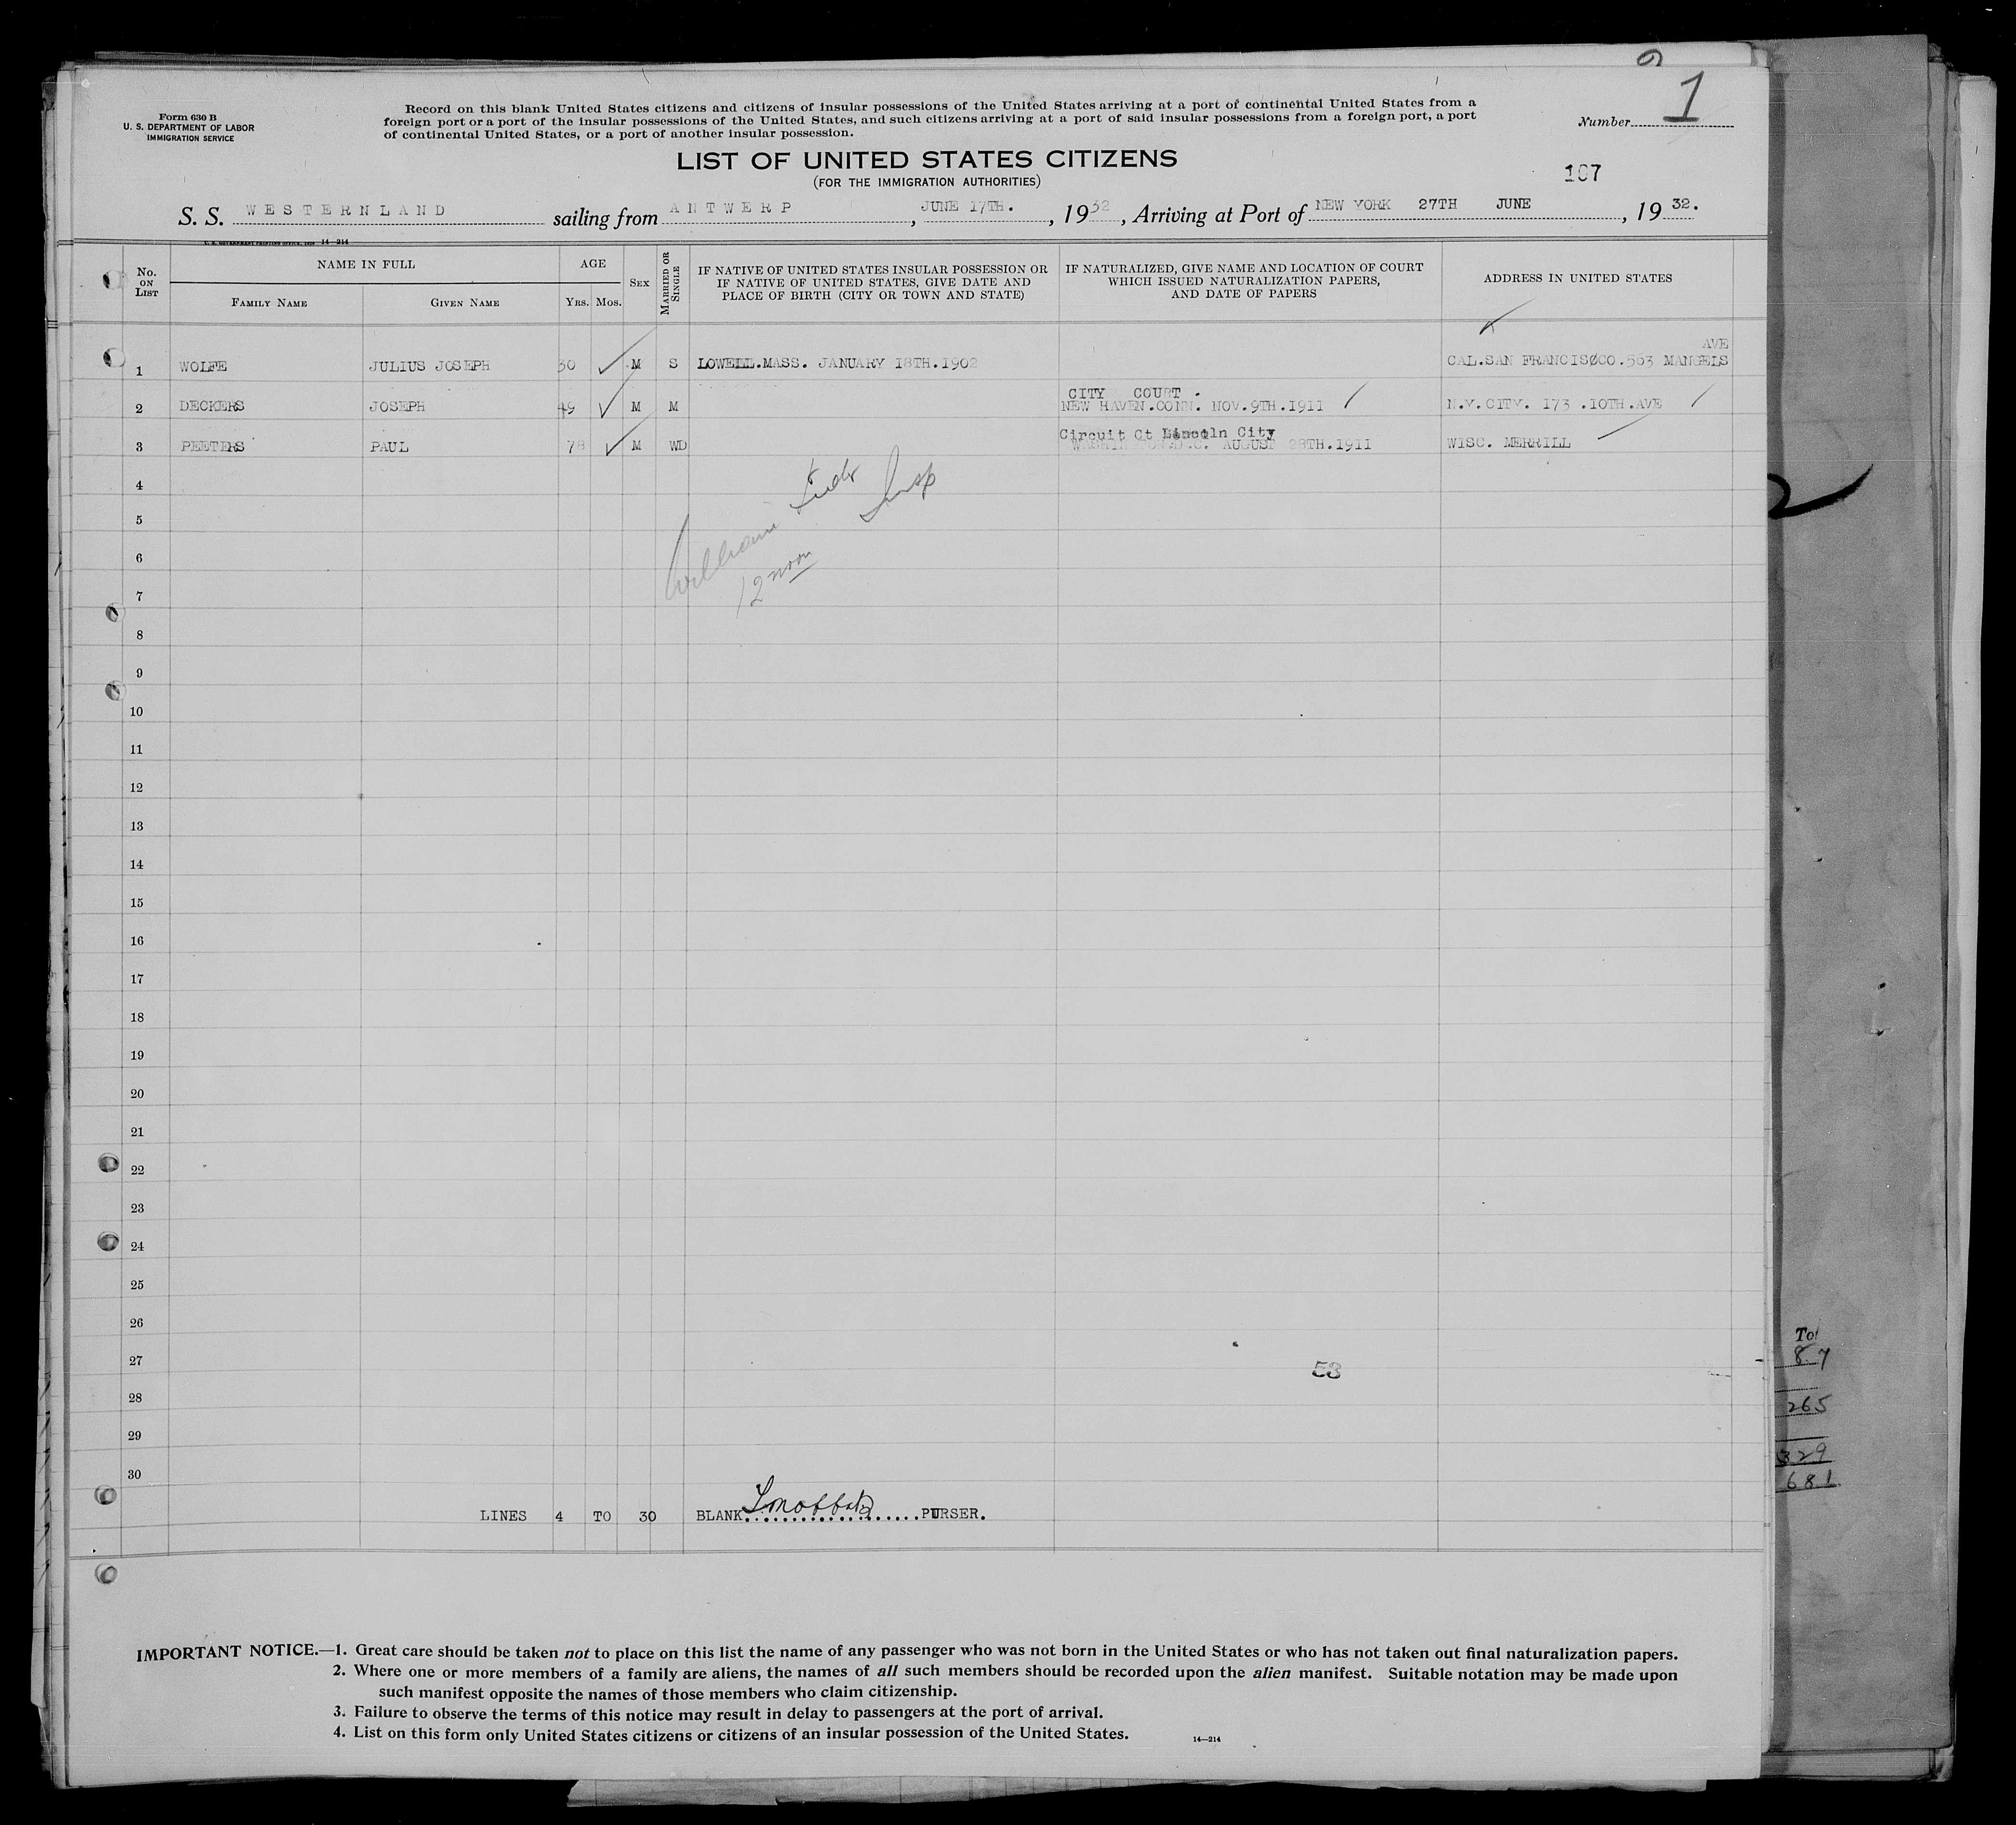 1
Form 630 B
U. S. DEPARTMENT OF LABOR
IMMIGRATION SERVICE
Record on this blank United States citizens and citizens of insular possessions of the United States arriving at a port of continental United States from a
foreign port or a port of the insular possessions of the United States, and such citizens arriving at a port of said insular possessions from a foreign port, a port
of continental United States, or a port of another insular possession.
Number
LIST OF UNITED STATES CITIZENS
(FOR THE IMMIGRATION AUTHORITIES)
107
S. S. WESTERNLAND sailing from ANTWERP, JUNE 17TH., 1932, Arriving at Port of NEW YORK 27TH JUNE, 1932.
U. S. GOVERNMENT PRINTING OFFICE, 1929 14—214
No. ON LIST
NAME IN FULL
FAMILY NAME
GIVEN NAME
AGE
YRS. MOS.
SEX
MARRIED OR SINGLE
IF NATIVE OF UNITED STATES INSULAR POSSESSION OR
IF NATIVE OF UNITED STATES, GIVE DATE AND
PLACE OF BIRTH (CITY OR TOWN AND STATE)
IF NATURALIZED, GIVE NAME AND LOCATION OF COURT
WHICH ISSUED NATURALIZATION PAPERS,
AND DATE OF PAPERS
ADDRESS IN UNITED STATES
AVE
1 WOLFE JULIUS JOSEPH 30 M S LOWELL.MASS. JANUARY 18TH.1902 CAL.SAN FRANCISCO.563 MANGELS
CITY COURT .
2 DECKERS JOSEPH 49 M M NEW HAVEN.CONN. NOV.9TH.1911 N.Y.CITY. 173 .10TH.AVE
Circuit Ct Lincoln City
3 PEETERS PAUL 78 M WD AUGUST 28TH.1911 WISC. MERRILL
4
5
6
7
8
9
10
11
12
13
14
15
16
17
18
19
20
21
22
23
24
25
26
27
28
29
30
William Insp
12 noon
53
LINES 4 TO 30 BLANK....................PURSER.
IMPORTANT NOTICE.—1. Great care should be taken not to place on this list the name of any passenger who was not born in the United States or who has not taken out final naturalization papers.
2. Where one or more members of a family are aliens, the names of all such members should be recorded upon the alien manifest. Suitable notation may be made upon
such manifest opposite the names of those members who claim citizenship.
3. Failure to observe the terms of this notice may result in delay to passengers at the port of arrival.
4. List on this form only United States citizens or citizens of an insular possession of the United States.
14—214
87
265
329
681